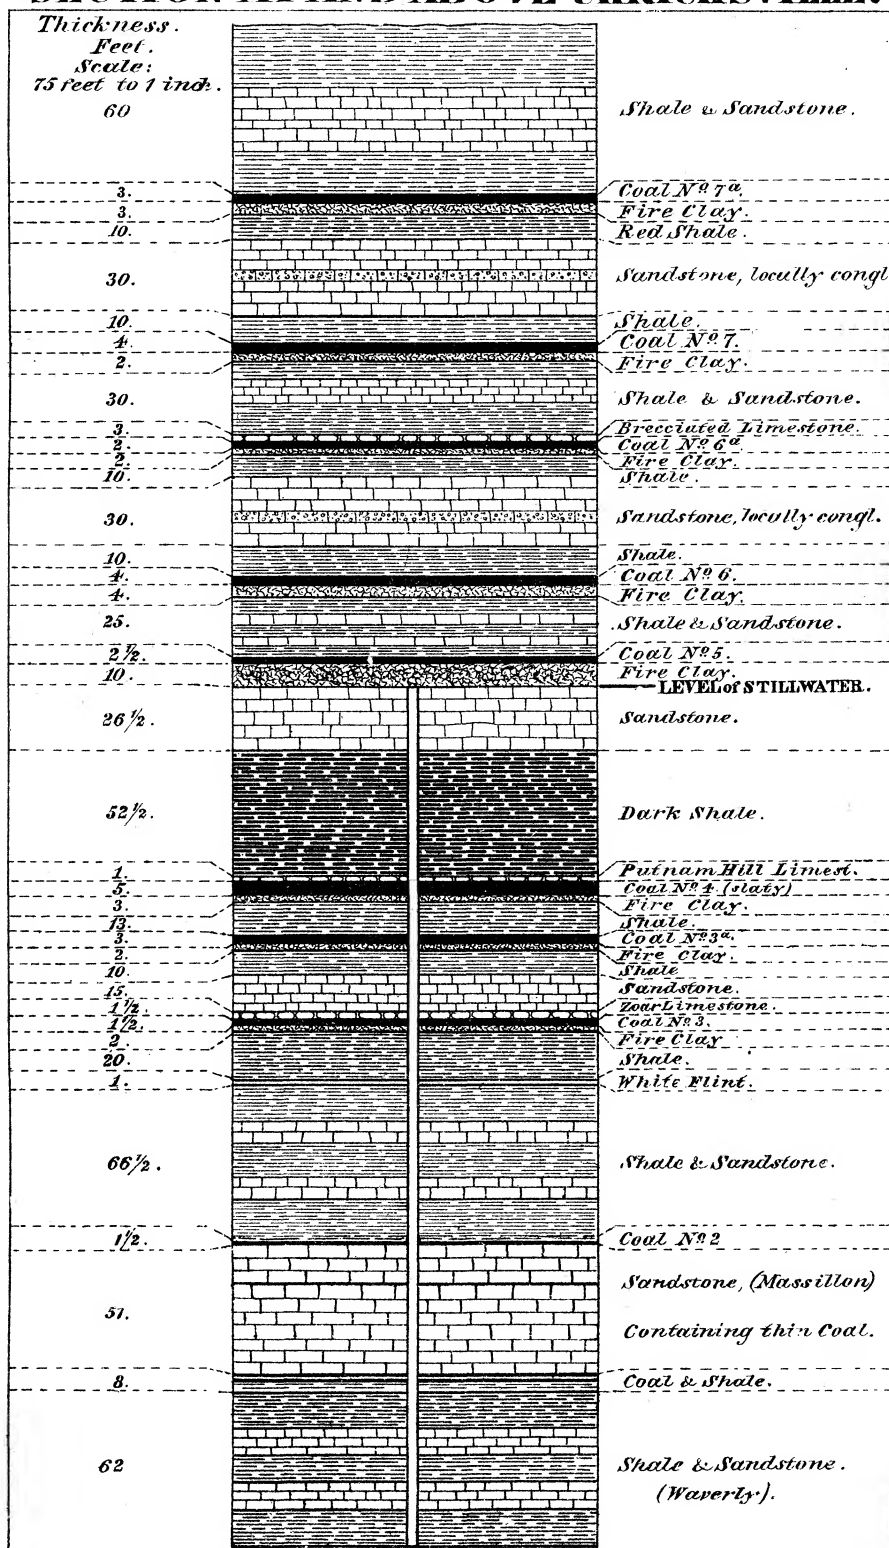 SECTION AT AND ABOVE URICHSVILLE.
Thickness.
Feet.
Scale:
75 feet to 1 inch.
60 Shale & Sandstone.
3. Coal Nº 7ª.
3. Fire Clay.
10. Red Shale.
30. Sandstone, locully congl
10. Shale.
4. Coal Nº 7.
2. Fire Clay.
30. Shale & Sandstone.
3. Brecciated Limestone.
2. Coal Nº 6ª
2. Fire Clay.
10. Shale.
30. Sandstone, locully congl.
10. Shale.
4. Coal Nº 6.
4. Fire Clay.
25. Shale & Sandstone.
2½. Coal Nº 5.
10. Fire Clay.
LEVEL of STILLWATER.
26½. Sandstone.
52½. Dark Shale.
1. Putnam Hill Limest.
5. Coal Nº 4 (slaty)
3. Fire Clay.
13. Shale.
3. Coal Nº 3ª.
2. Fire Clay.
10. Shale
15. Sandstone.
1½. Zoar Limestone.
1½. Coal Nº 3.
2. Fire Clay
20. Shale.
1. White Flint.
66½. Shale & Sandstone.
1/2. Coal Nº 2
Sandstone, (Massillon)
51.
Containing thin Coal.
8. Coal & Shale.
62 Shale & Sandstone.
(Waverly).